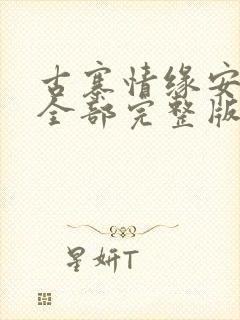 古寨情缘安
全部完整版
星妍T